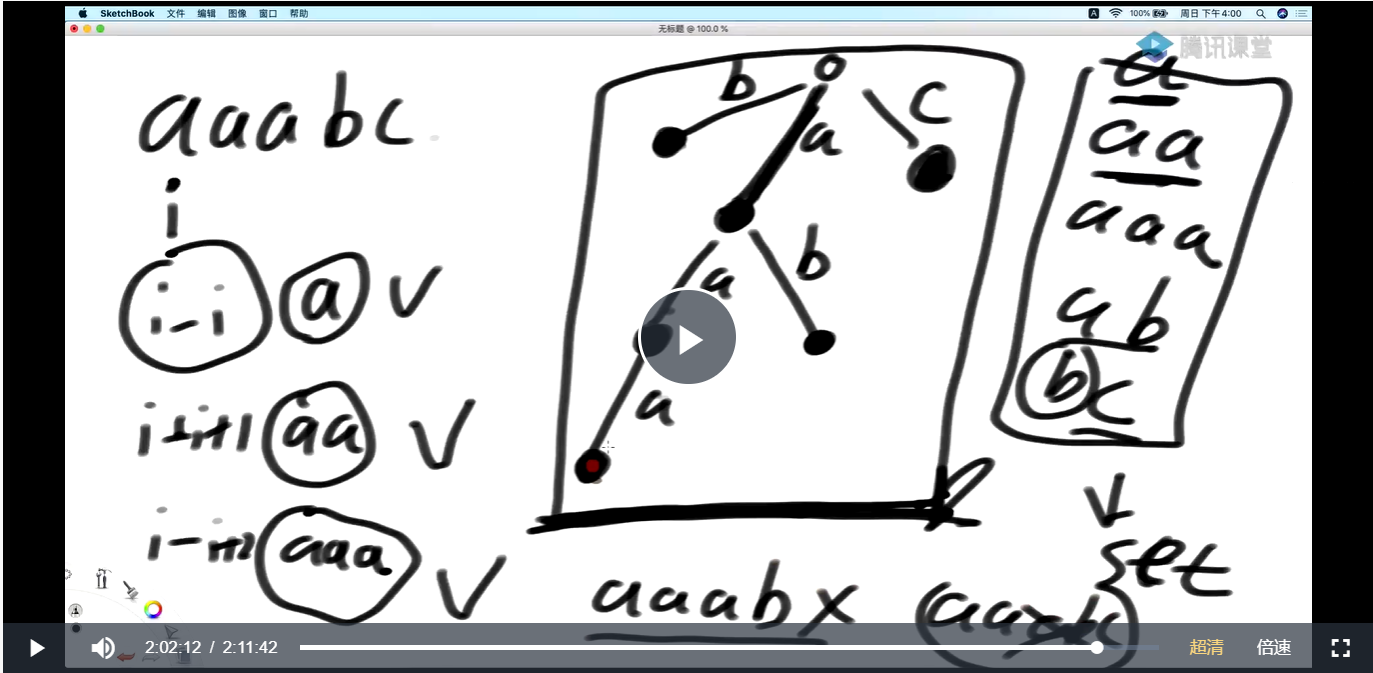 SketchBook 文件 编辑 图像 窗口 帮助
A 100% 周日 下午4:00
无标题 @ 100.0 %
腾讯课堂
aaabc
i
i-i a
i-i+1 aa
i-i+2 aaa
b
o
c
a
a
b
a
a
aa
aaa
ab
bc
set
aaabx
2:02:12 / 2:11:42
超清
倍速